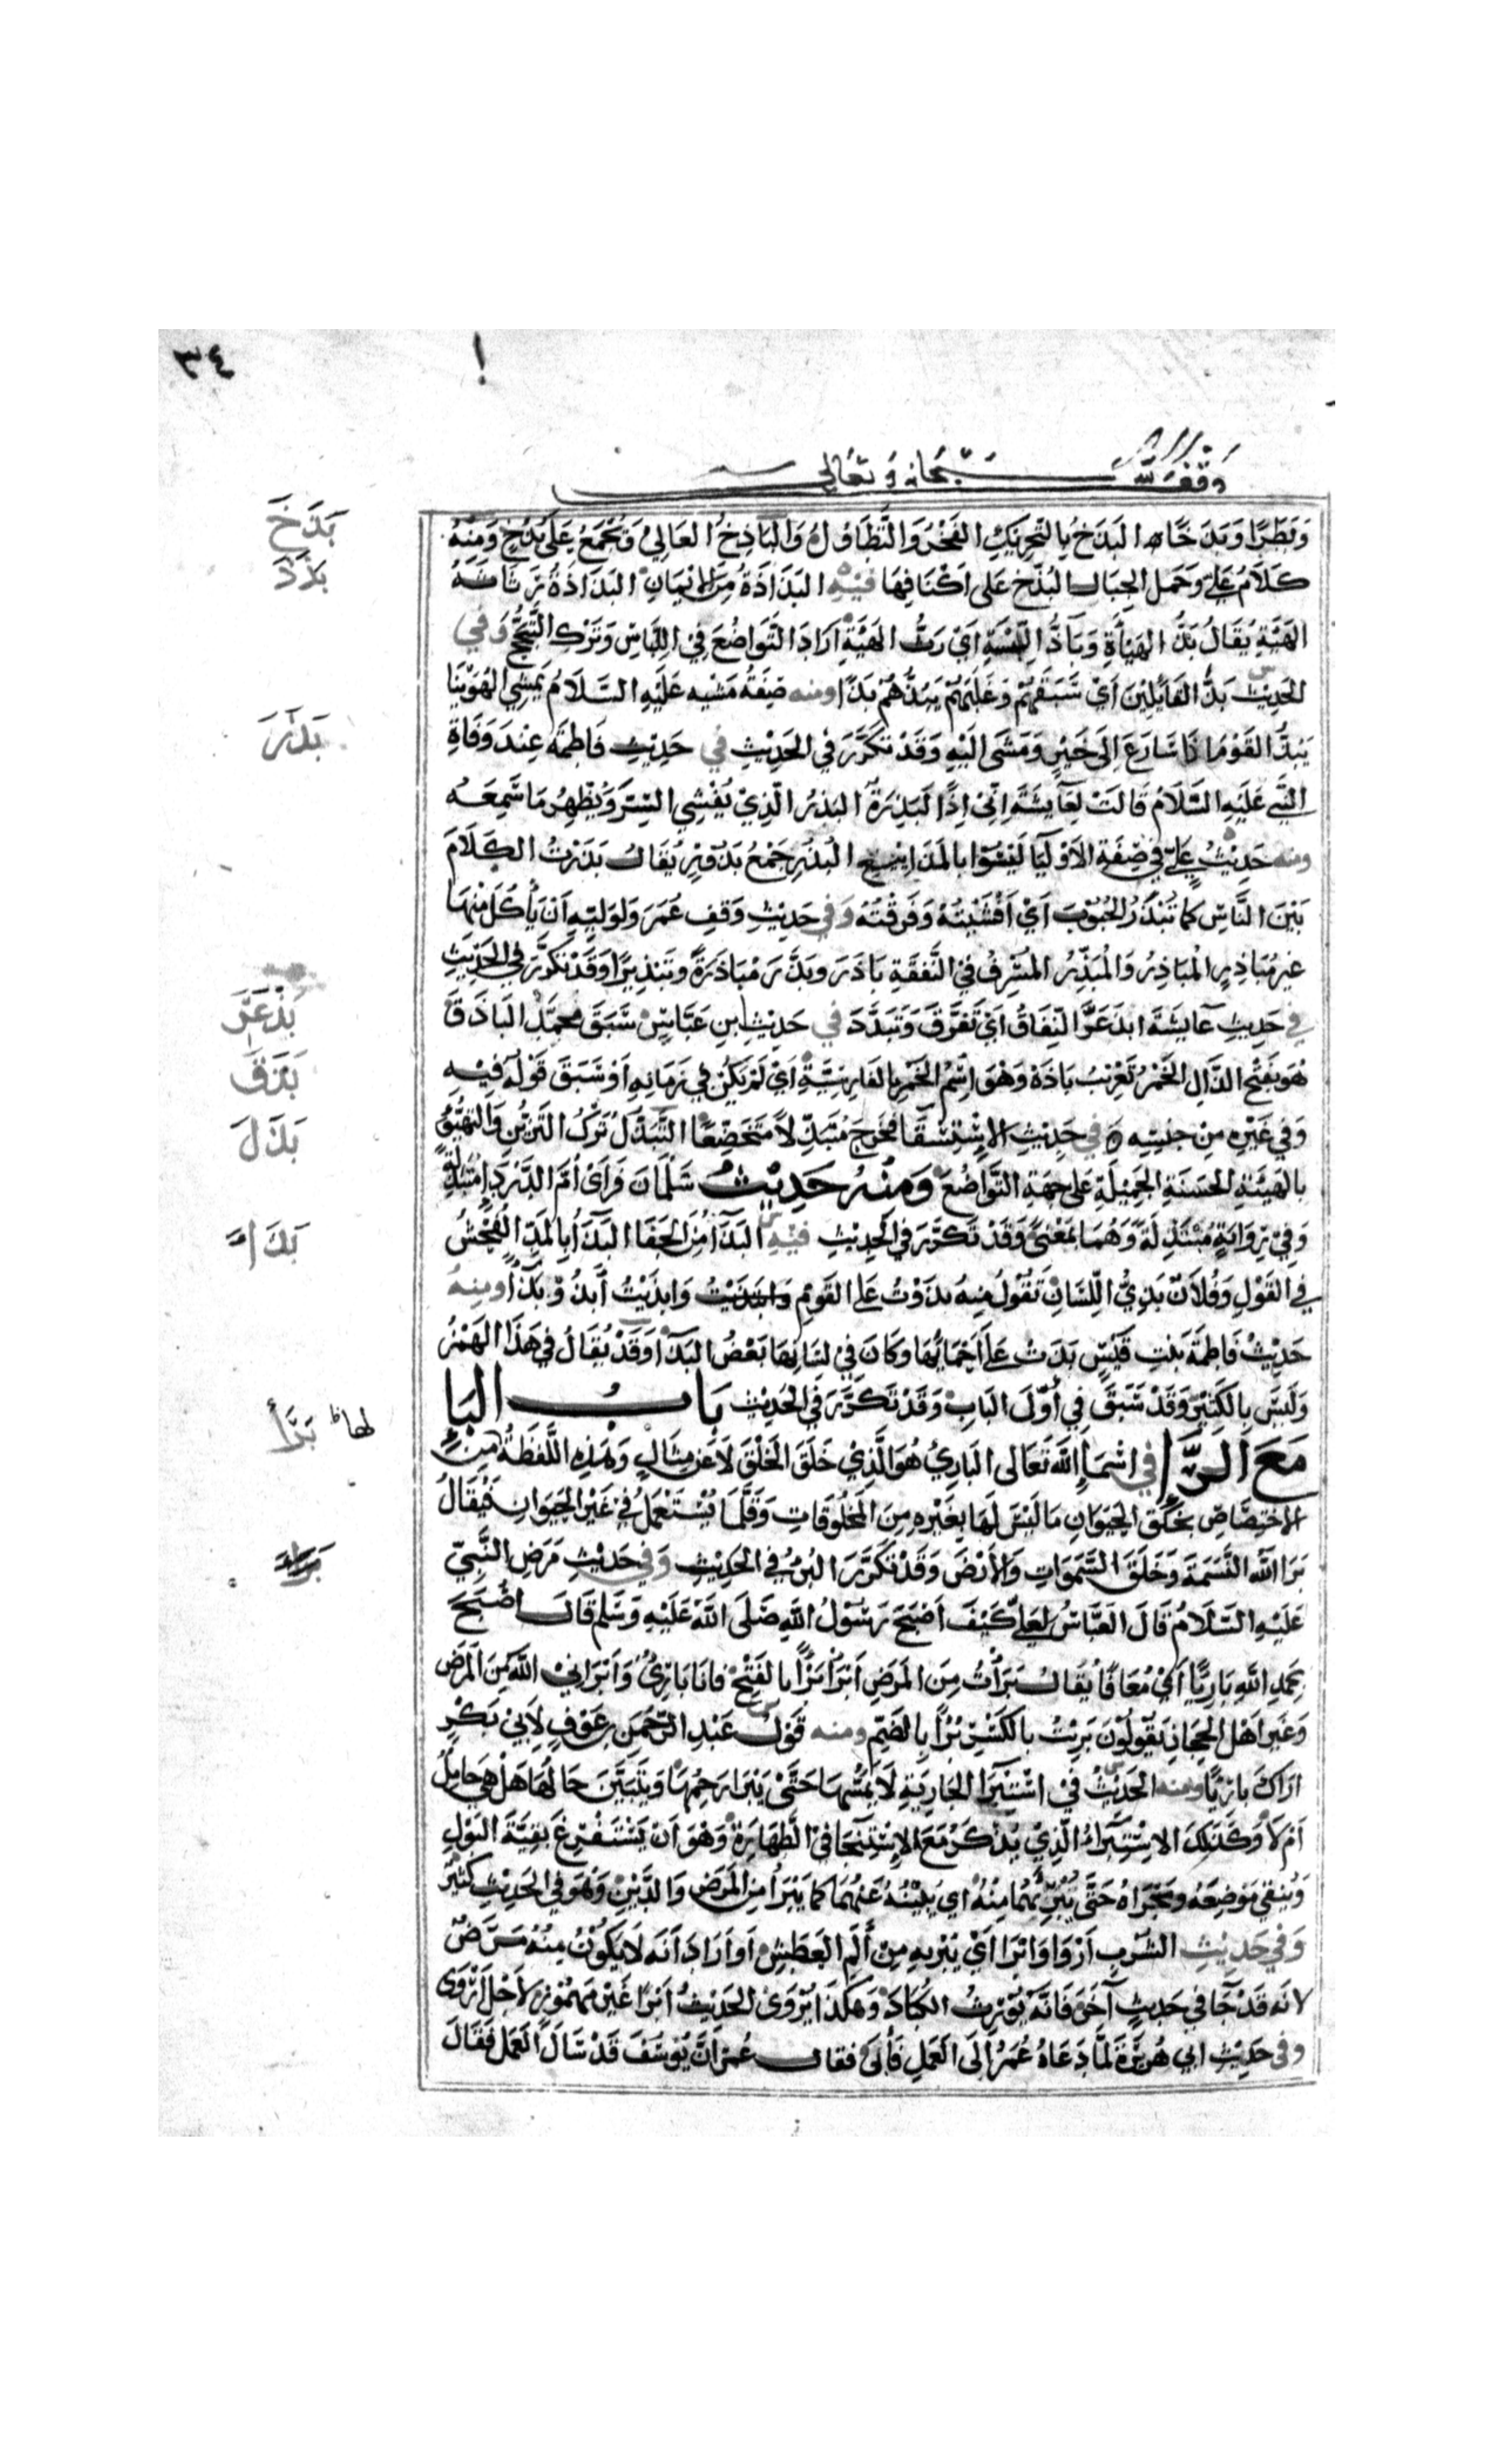 ٣٤
وقف لله سبحانه وتعالى
وَبَطَرًا وَبَذَخًا ه البَذَخُ بِالتَّحْرِيكِ الفَخْرُ وَالتَّطَاوُلُ وَالْبَاذِخُ العَالِي وَيُجْمَعُ عَلَى بُذَّخٍ وَمِنْهُ
بَذَخَ
كَلَامُ عَلِيٍّ وَحَمَلَ الجِبَالَ البُذَّخَ عَلَى أَكْتَافِهَا فِيْهِ البَذَاذَةُ مِنَ الإِيْمَانِ البَذَاذَةُ رَثَاثَةُ
بَذَذَ
الهَيْئَةِ يُقَالُ بَذُّ الهَيْأَةِ وَبَاذُّ اللِّبْسَةِ أَيْ رَثُّ الهَيْئَةِ أَرَادَ التَّوَاضُعَ فِي اللِّبَاسِ وَتَرْكَ التَّبَجُّحِ وَفِي
الحَدِيْثِ بَذَّ القَائِلِيْنَ أَيْ سَبَقَهُمْ وَغَلَبَهُمْ يَبُذُّهُمْ بَذًّا ومنه صِفَةُ مَشْيِه عَلَيْهِ السَّلَامُ يَمْشِي الهُوَيْنَا
يَبُذُّ القَوْمَ اذَا سَارَعَ إِلَى خَيْرٍ وَمَشَى الَيْهِ وَقَدْ تَكَرَّرَ فِي الحَدِيْثِ في حَدِيْثِ فَاطِمَةَ عِنْدَ وَفَاةِ
بَذَرَ
النَّبِيِّ عَلَيْهِ السَّلَامُ قَالَتْ لِعَآئِشَةَ اِنِّيْ اِذًا لَبَذِرَةٌ البَذِرُ الَّذِيْ يُفْشِي السِّرَّ وَيُظْهِرُ مَا سَمِعَهُ
ومنه حَدِيْثُ عَلِيٍّ فِي صِفَةِ الأَوْلِيَا لَيْسُوا بِالمَذَايِيْعِ البُذُرِ جَمْعُ بَذُوْرٍ يُقَالُ بَذَرْتُ الكَلَامَ
بَيْنَ النَّاسِ كَمَا تُبْذَرُ الحُبُوْبُ أَيْ أَفْشَيْتُهُ وَفَرَّقْتُهُ وَفِي حَدِيْثِ وَقْفِ عُمَرَ وَلِوَلِيِّهِ أَنْ يَأْكُلَ مِنْهَا
غيرَ مُبَاذِرٍ الْمُبَاذِرُ وَالْمُبَذِّرُ المُسْرِفُ فِي النَّفَقَةِ بَاذَرَ وبَذَّرَ مُبَاذَرَةً وتَبْذِيْرًا وَقَدْ تَكَرَّرَ فِي الحَدِيْثِ
في حَدِيْثِ عَآئِشَةَ ابْذَعَرَّ النِّفَاقُ أَيْ تَفَرَّقَ وَتَبَدَّدَ في حَدِيْثِ ابنِ عَبَّاسٍ سَبَقَ مُحَمَّدٌ البَاذَقَ
بَذْعَرَ
هُوَ بِفَتْحِ الذَّالِ الخَمْرُ تَعْرِيْبُ بَاذَهْ وَهُوَ اسْمُ الخَمْرِ بِالفَارِسِيَّةِ أَيْ لَمْ يَكُنْ فِي زَمَانِهِ أَوْ سَبَقَ قَوْلُهُ فِيْهِ
بَذَقَ
وَفِي غَيْرِهِ مِنْ جِنْسِهِ ه في حَدِيْثِ الإِسْتِسْقَا فَخَرَجَ مُتَبَذِّلًا مُتَخَضِّعًا التَّبَذُّلُ تَرْكُ التَّزَيُّنِ وَالتَّهَيُّؤُ
بَذَلَ
بِالهَيْئَةِ الحَسَنَةِ الجَمِيْلَةِ عَلَى جِهَةِ التَّوَاضُعِ وَمِنْهُ حَدِيْثُ سَلْمَانَ فَرَأَى أُمَّ الدَّرْدَاءِ مُتَبَذِّلَةً
وَفِي رِوَايَةٍ مُبْتَذِلَةً وَهُمَا بِمَعْنًى وَقَدْ تَكَرَّرَ فِي الْحَدِيْثِ فِيْهِ البَذَآءُ مِنَ الجَفَا البَذَآءُ بِالمَدِّ الفُحْشُ
بَذَاءَ
فِي القَوْلِ وَفُلَانٌ بَذِيُّ اللِّسَانِ تَقُوْلُ مِنْهُ بَذَوْتُ عَلَى القَوْمِ وَابْذَيْتُ أَبْذُوْ بَذَآءً ومِنْهُ
حَدِيْثُ فَاطِمَةَ بِنْتِ قَيْسٍ بَذَتْ عَلَى أَحْمَائِهَا وَكَانَ فِي لِسَانِهَا بَعْضُ البَذَآءِ وَقَدْ يُقَالُ فِي هَذَا الهَمْزُ
وَلَيْسَ بِالكَثِيْرِ وَقَدْ سَبَقَ فِي أَوَّلِ البَابِ وَقَدْ تَكَرَّرَ فِي الحَدِيْثِ بَابُ البَاءِ
مَعَ الرَّاءِ في اسْمَاءِ اللهِ تَعَالَى البَارِئُ هُوَ الَّذِيْ خَلَقَ الخَلْقَ لَا عَنْ مِثَالٍ وَلِهَذِهِ اللَّفْظَةُ مِنَ
بَرَأَ
الإِخْتِصَاصِ بِخَلْقِ الحَيَوَانِ مَا لَيْسَ لَهَا بِغَيْرِهِ مِنَ المَخْلُوْقَاتِ وَقَلَّمَا يُسْتَعْمَلُ فِي غَيْرِ الحَيَوَانِ فَيُقَالُ
بَرَا اللهُ النَّسَمَةَ وَخَلَقَ السَّمَوَاتِ وَالأَرْضَ وَقَدْ تَكَرَّرَ البُرْءُ فِي الحَدِيْثِ وَفِي حَدِيْثِ مَرَضِ النَّبِيِّ
عَلَيْهِ السَّلَامُ قَالَ العَبَّاسُ لِعَلِيٍّ كَيْفَ أَصْبَحَ رَسُوْلُ اللهِ صَلَّى اللهُ عَلَيْهِ وَسَلَّمَ قَالَ أَصْبَحَ
بِحَمْدِ اللهِ بَارِئًا أَيْ مُعَافًا يُقَالُ بَرَأْتُ مِنَ المَرَضِ أَبْرَأُ بَرْأً بِالفَتْحِ فَانَا بَارِئٌ وَأَبْرَأَنِيْ اللهُ مِنَ المَرَضِ
وَغَيْرُ اهْلِ الحِجَازِ يَقُوْلُوْنَ بَرِئْتُ بِالكَسْرِ بُرْأً بِالضَّمِّ ومنه قَوْلُ عَبْدِ الرَّحْمَنِ بنِ عَوْفٍ لِأَبِيْ بَكْرٍ
ارَاكَ بَارِئًا ومنه الحَدِيْثُ فِي اسْتِبْرَاءِ الجَارِيَةِ لَا يَمَسُّهَا حَتَّى يَبْرَا رَحِمُهَا وَيَتَبَيَّنَ حَالُهَا هَلْ هِيَ حَامِلٌ
أَمْ لَا وَكَذَلِكَ الاسْتِبْرَاءُ الَّذِيْ يُذْكَرُ مَعَ الإِسْتِنْجَا فِي الطَّهَارَةِ وَهُوَ أَنْ يَسْتَفْرِغَ بَقِيَّةَ البَوْلِ
وَيُنْقِيَ مَوْضِعَهُ وَمَجْرَاهُ حَتَّى يُبَرِّئَهُمَا مِنْهُ أَيْ يُبِيْنُهُ عَنْهُمَا كَمَا يَبْرَأُ مِنَ المَرَضِ وَالدَّيْنِ وَهُوَ فِي الحَدِيْثِ كَثِيْرٌ
وَفِي حَدِيْثِ الشُّرْبِ أَرْوَا وَابْرَا أَيْ يُبْرِيهِ مِنْ أَلَمِ العَطَشِ أَوْ أَرَادَ أَنَّهُ لَا يَكُوْنُ مِنْهُ مَرَضٌ
لانَّهُ قَدْ جَا فِي حَدِيْثٍ آخَرَ فَانَّهُ يُوْرِثُ الكُبَادَ وَهَكَذَا يُرْوَى الحَدِيْثُ أَبْرَا غَيْرَ مَهْمُوْزٍ لِأَجْلِ أَرْوَى
وفي حَدِيْثِ ابي هُرَيْرَةَ لَمَّا دَعَاهُ عُمَرُ إِلَى العَمَلِ فَأَبَى فقال عُمَرُ انَّ يُوْسُفَ قَدْ سَأَلَ العَمَلَ فَقَالَ